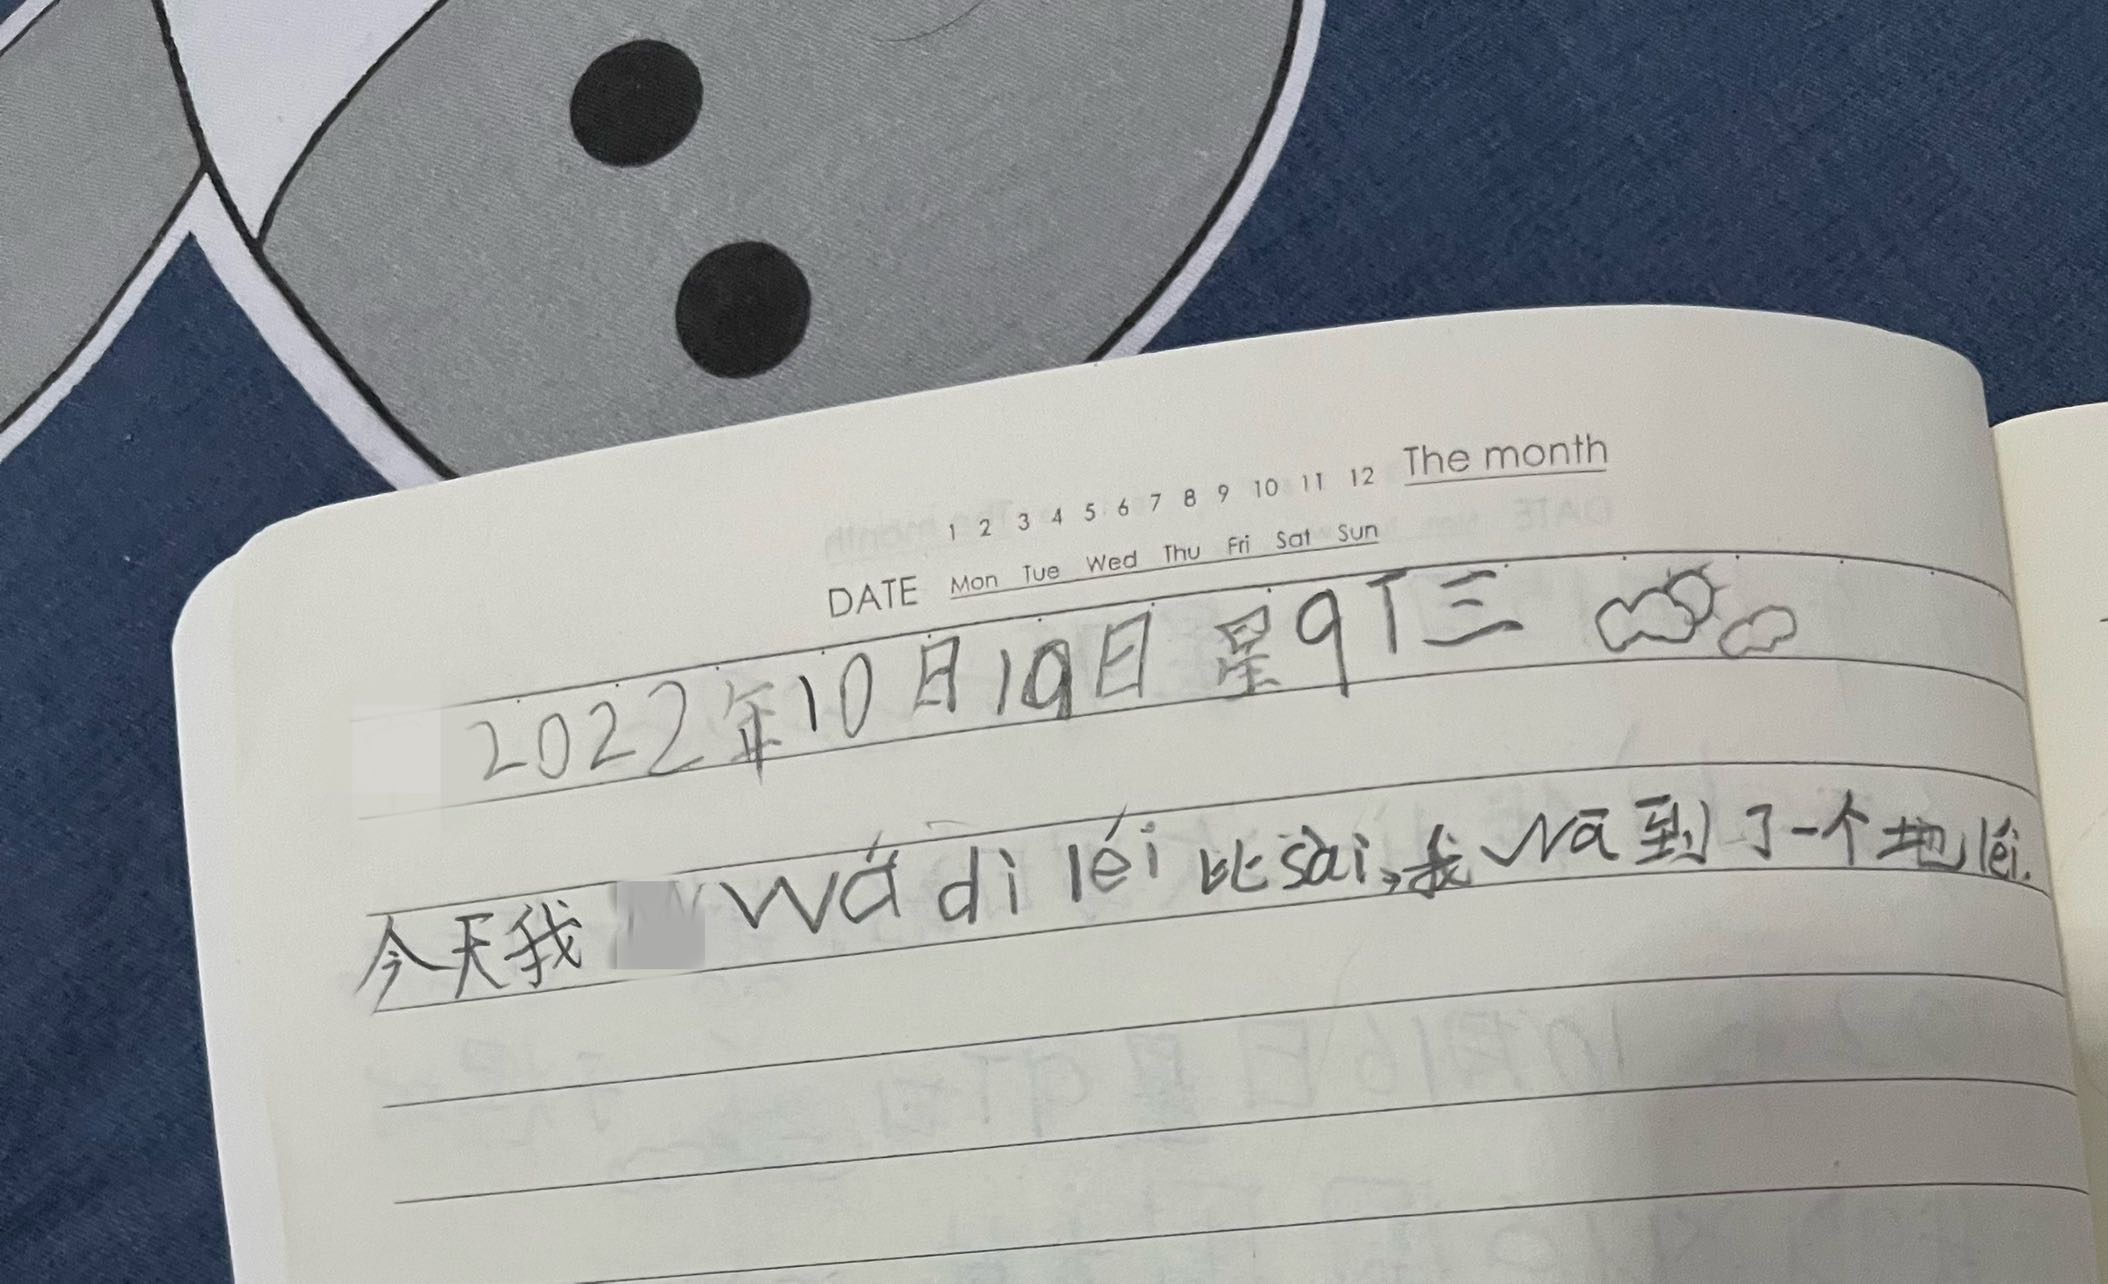 1 2 3 4 5 6 7 8 9 10 11 12 The month
DATE Mon Tue Wed Thu Fri Sat Sun
2022年10月19日 星qT三
今天我 wá dì léi 比sài,我 wā 到了一个地léi.